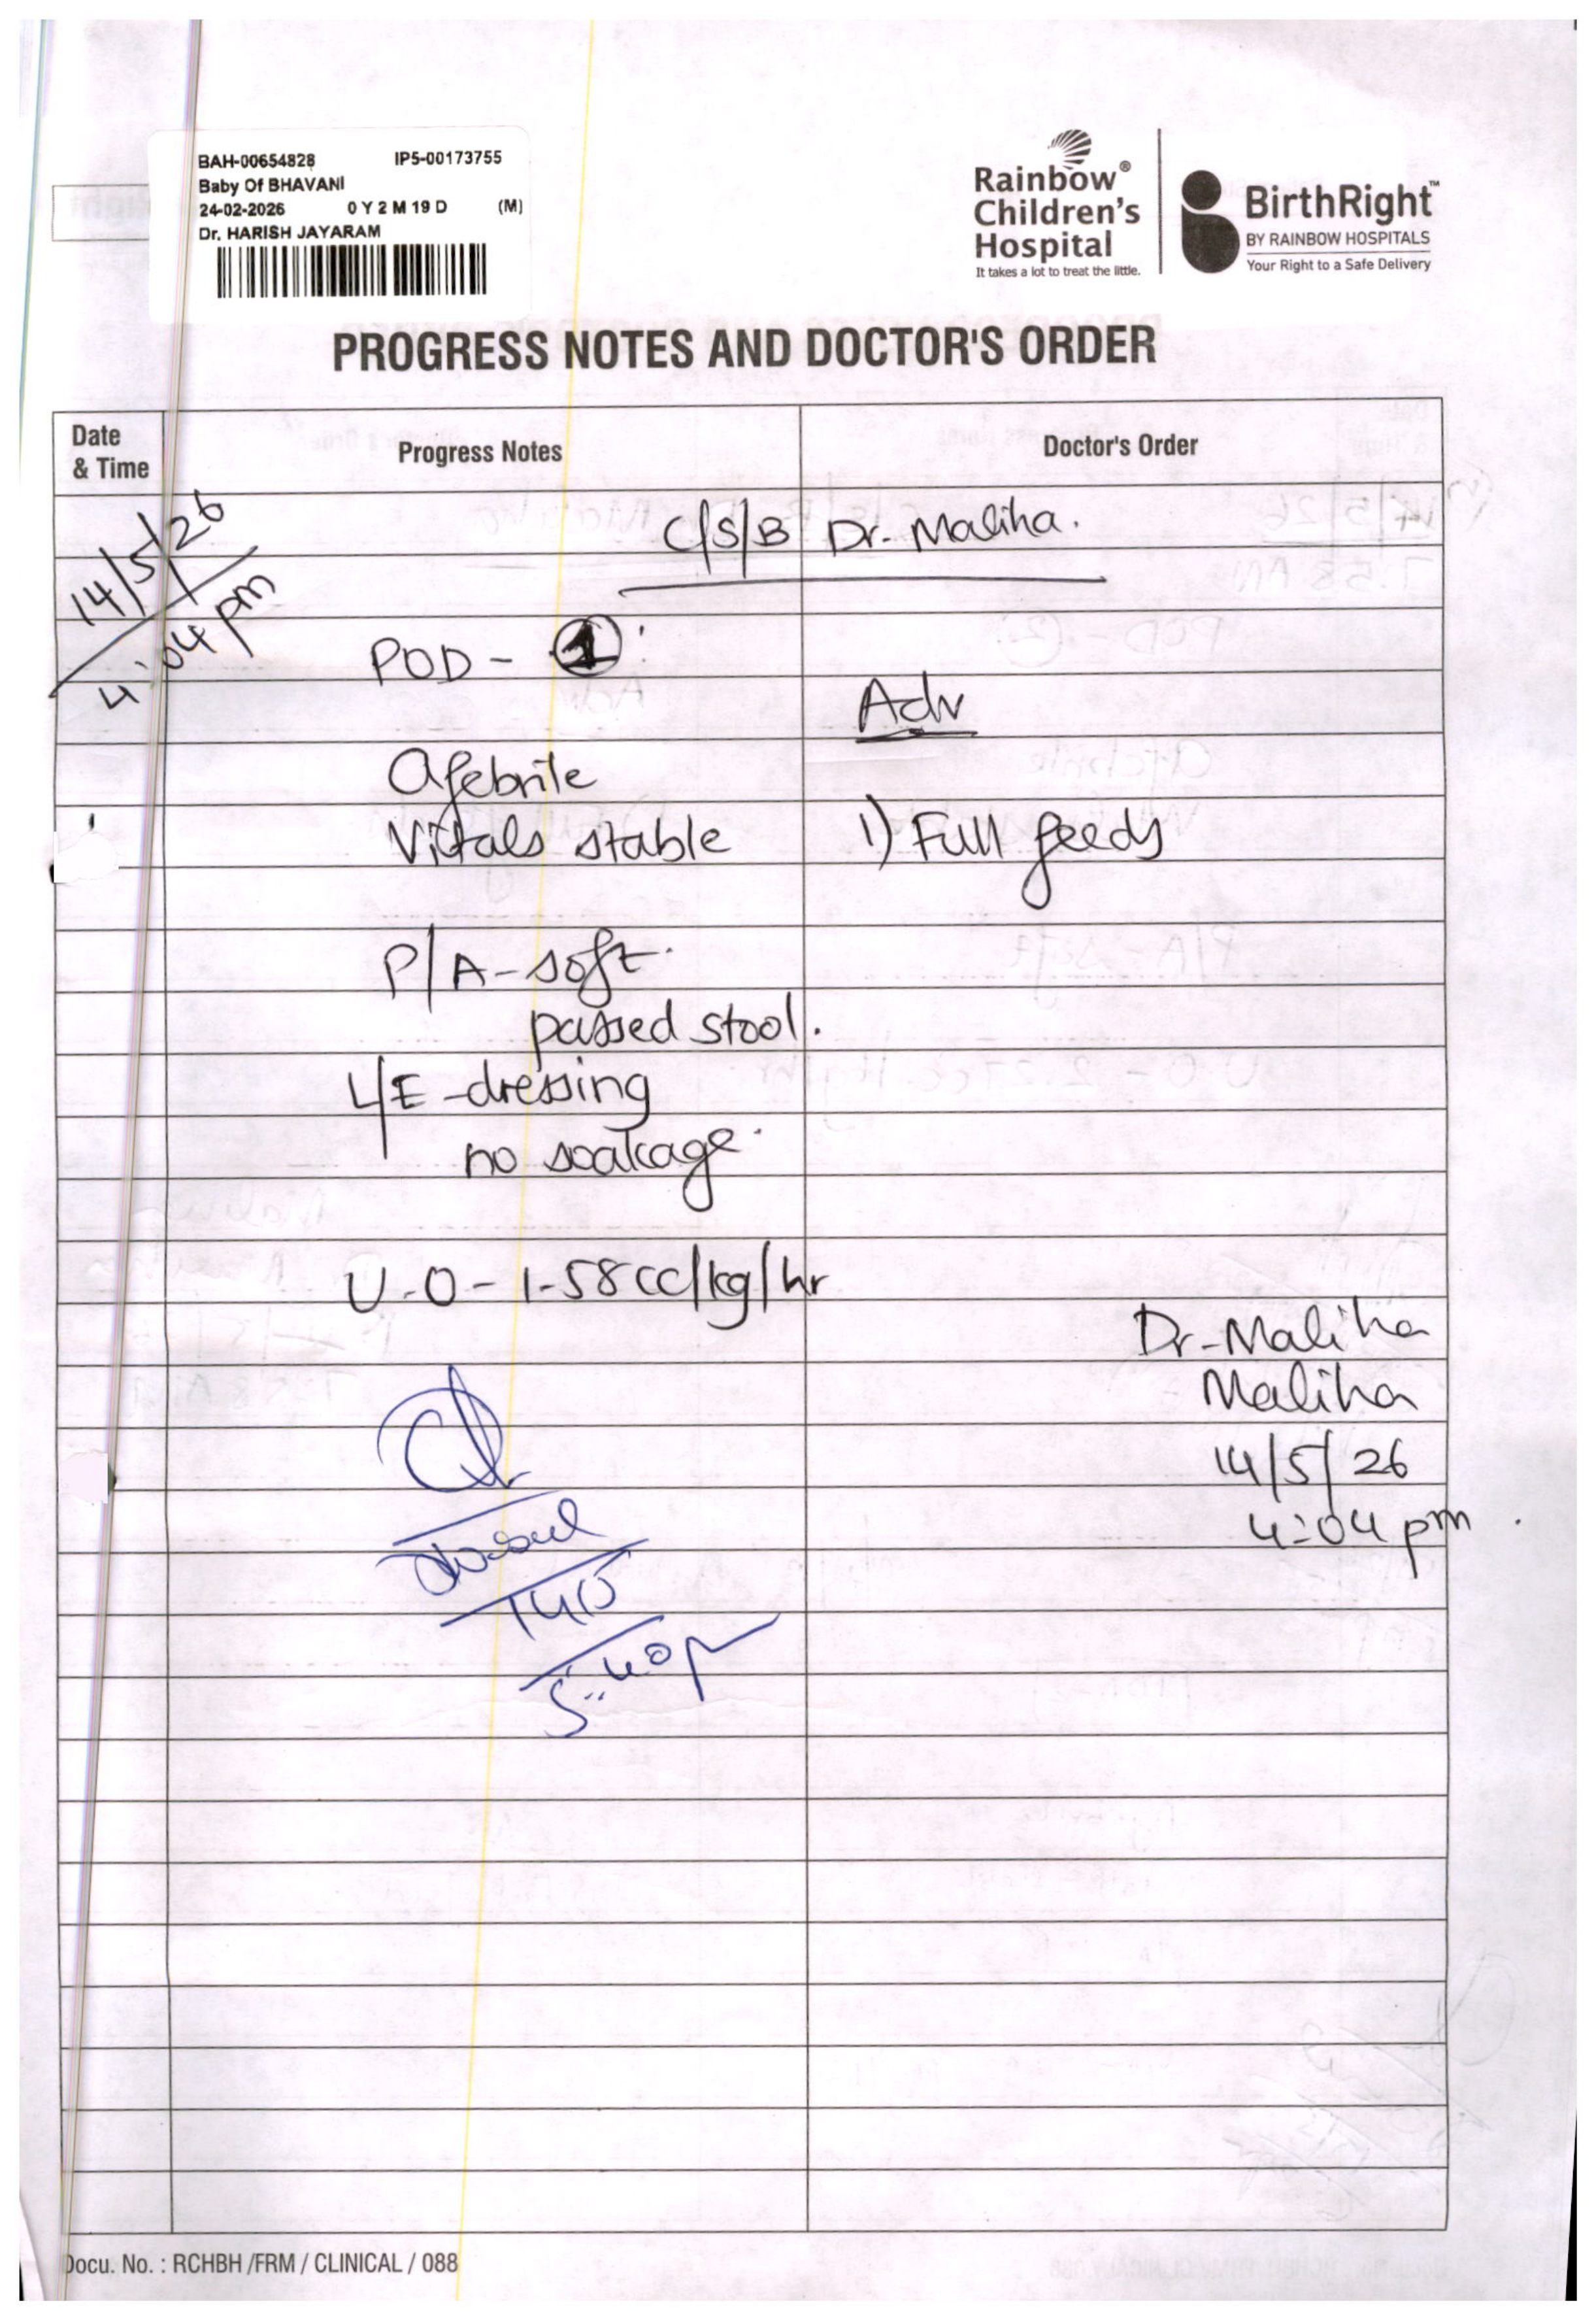 BAH-00654828 IP5-00173755
Baby Of BHAVANI
24-02-2026 0 Y 2 M 19 D (M)
Dr. HARISH JAYARAM
Rainbow®
Children's
Hospital
It takes a lot to treat the little.
BirthRight™
BY RAINBOW HOSPITALS
Your Right to a Safe Delivery
PROGRESS NOTES AND DOCTOR'S ORDER
Date
& Time
Progress Notes
Doctor's Order
14/5/26
4:04 pm
C/S/B Dr. Maliha.
POD - 1
Adv
Afebrile
Vitals stable
1) Full feeds
P/A - soft.
passed stool.
L/E - dressing
no soakage.
U.O - 1.58 cc/kg/hr
Dr. Maliha
Maliha
14/5/26
4:04 pm.
5:40p
Docu. No. : RCHBH /FRM / CLINICAL / 088